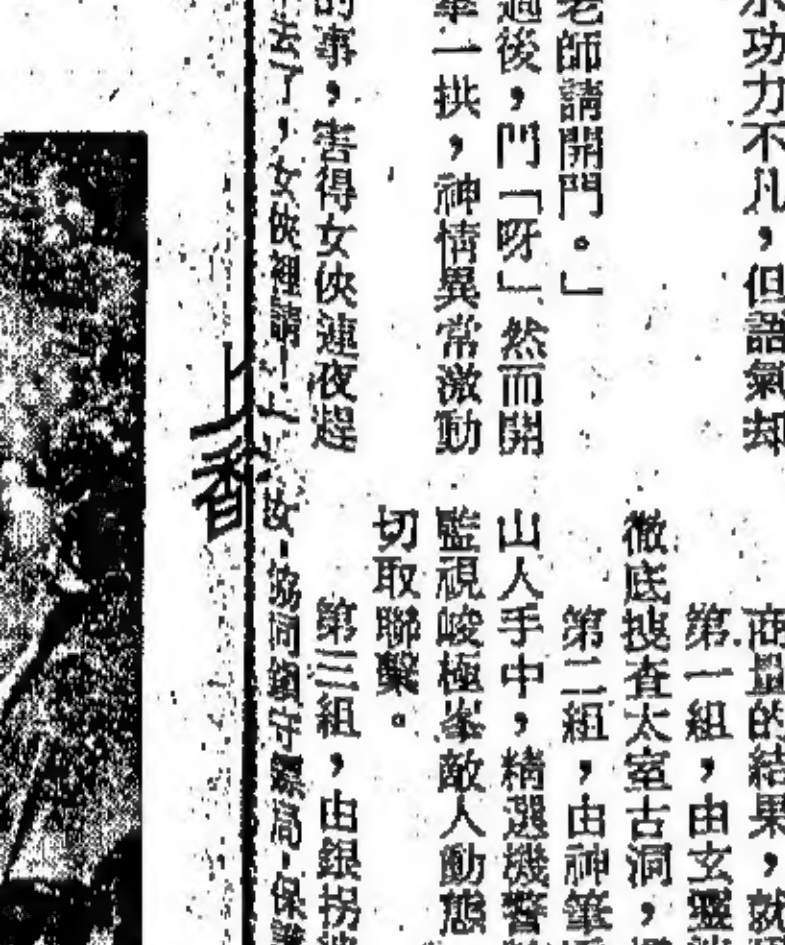 功力不凡，但語氣却
老師請開門。」
過後，門「呀」然而開
一拱，神情異常激動
的事，害得女俠連夜趕
去了，女俠裡請！」
商量的結果，就
第一組，由玄靈
徹底搜查太室古洞，
第二組，由神筆
山人手中，精選機警
監視峻極峯敵人動態
切取聯繫。
第三組，由銀拐
女，協同鎮守鏢局，保護
上香